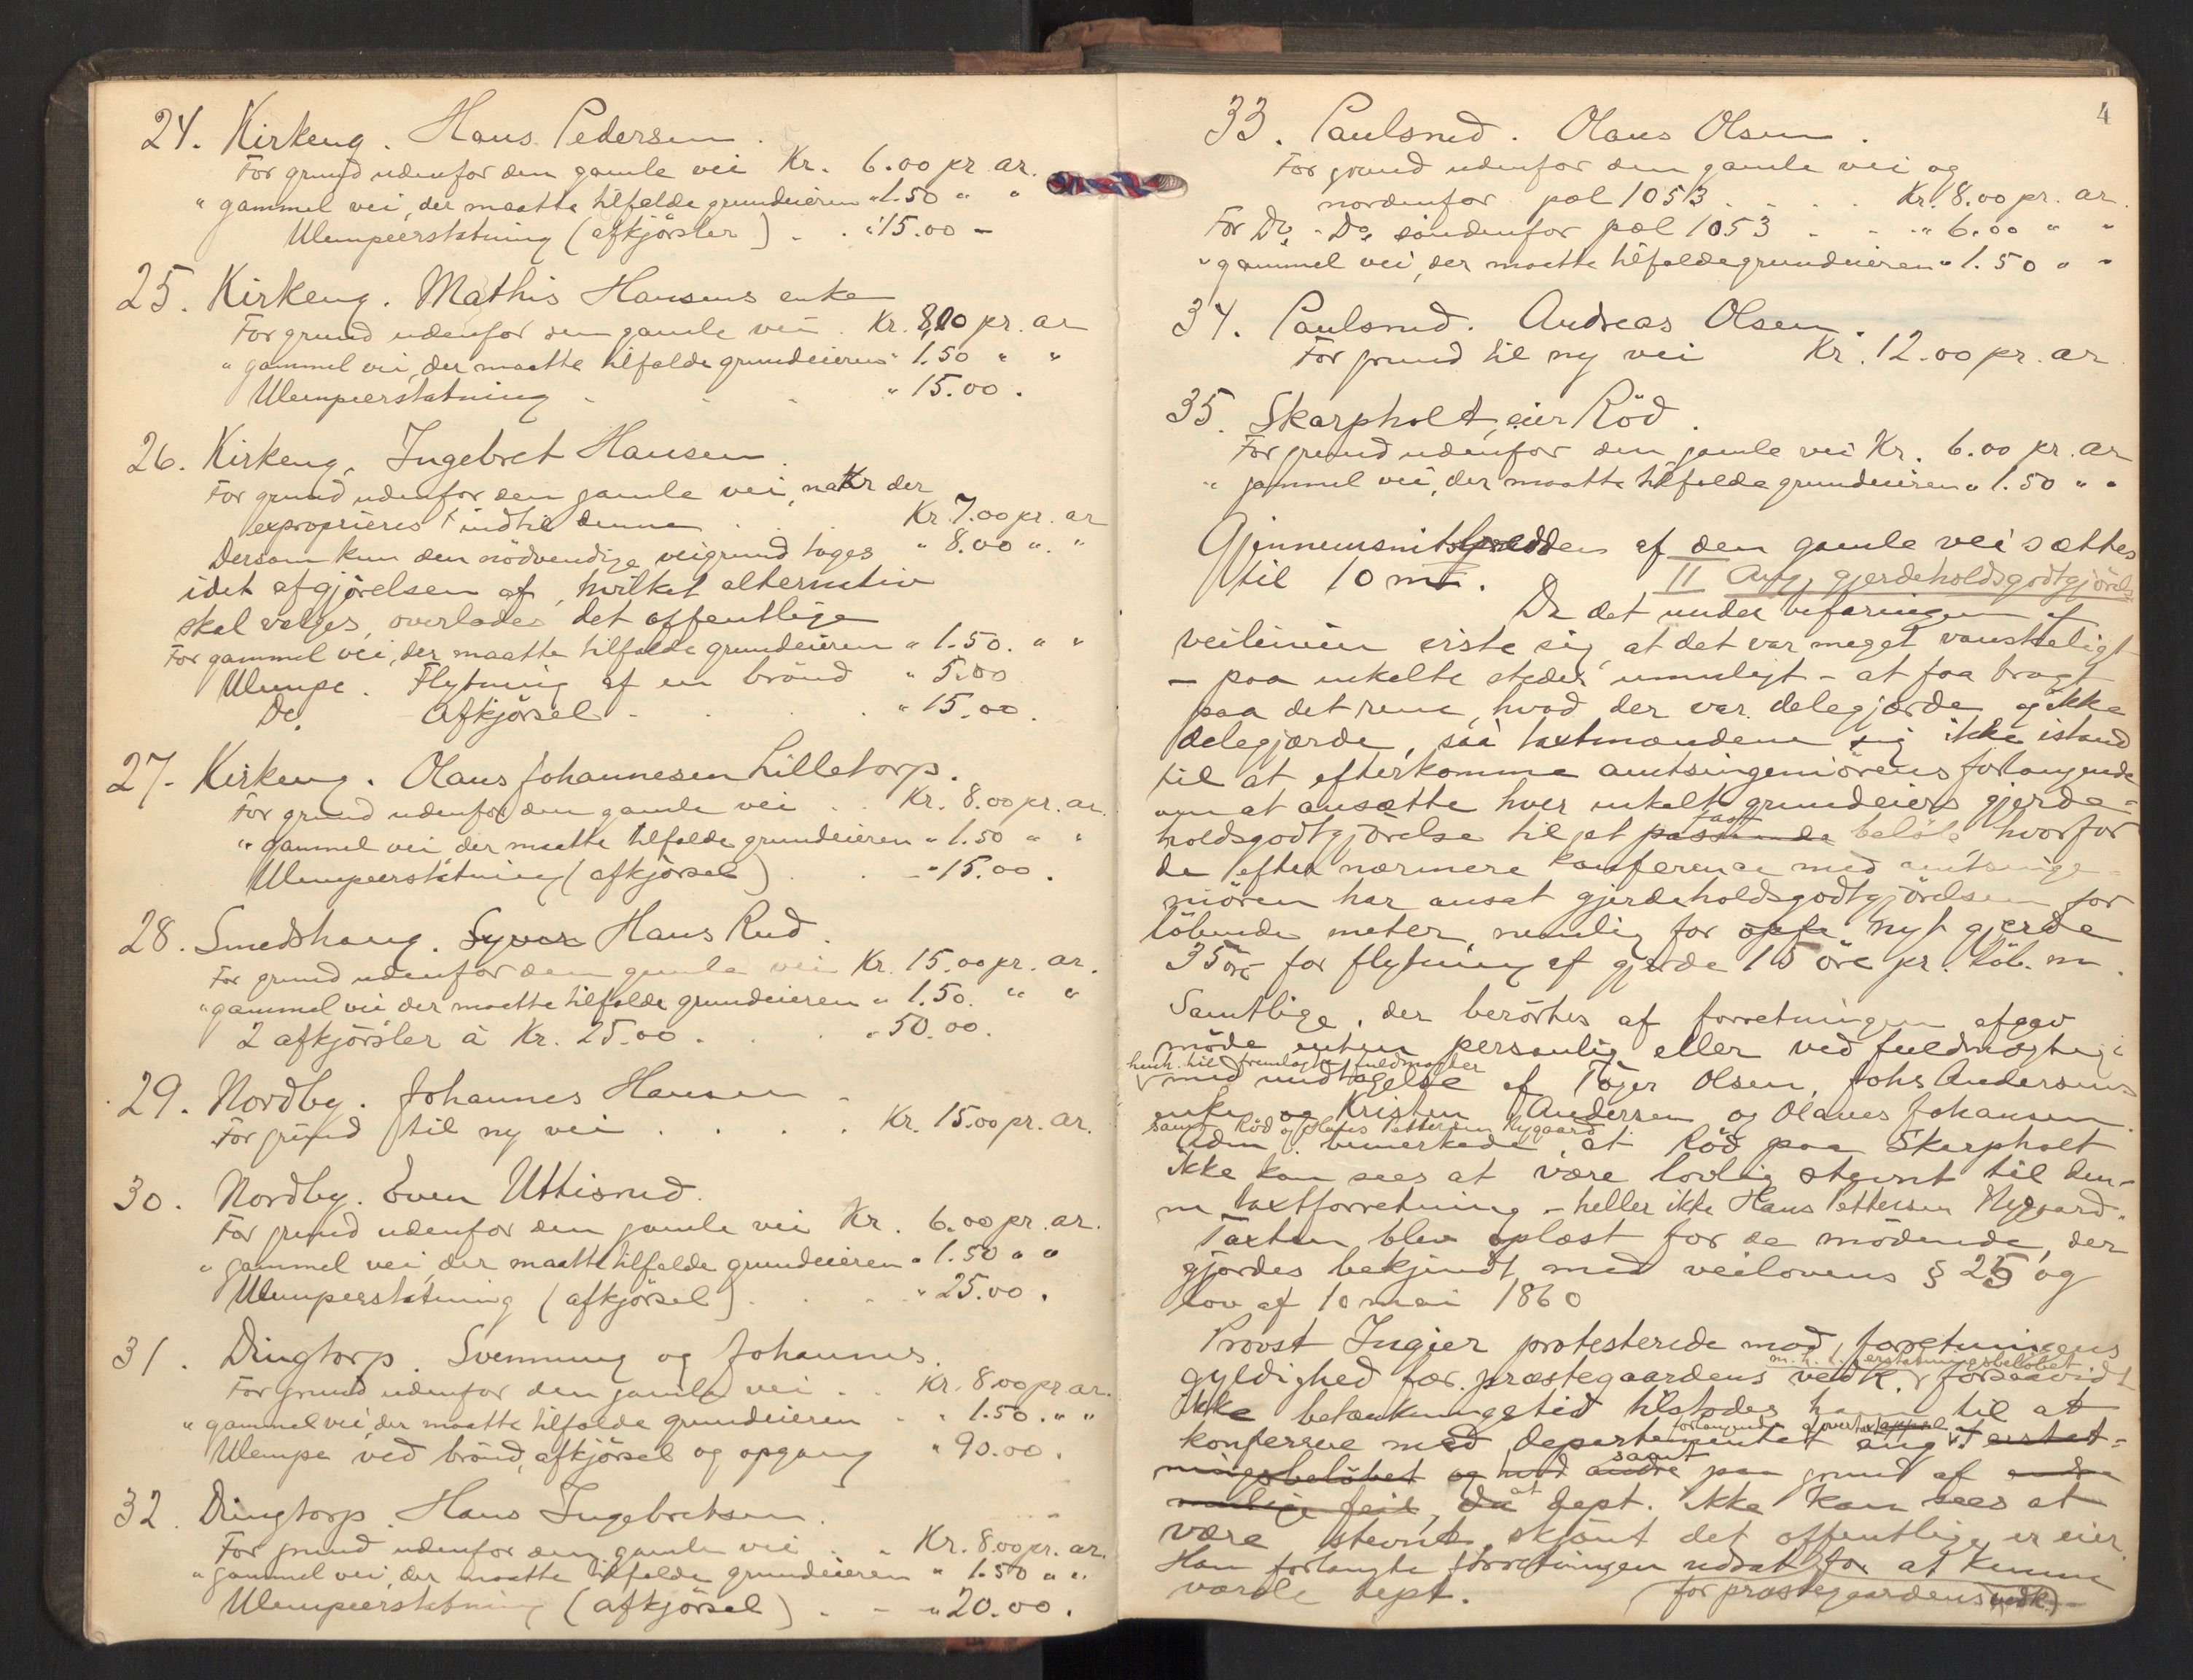 24. Kirkeng. Hans Pedersen.
For grund udenfor den gamle vei Kr. 6.00 pr ar.
" gammel vei, der maatte tilfalde grundeieren " 1.50 " "
Ulempeerstatning (afkjörsler) . . " 15.00 -
25. Kirkeng. Mathis Hansens enke
For grund udenfor den gamle vei . Kr. 8,00 pr. ar
" gammel vei, der maatte tilfalde grundeieren " 1.50 " "
Ulempeerstatning . . . " 15.00.
26. Kirkeng, Ingebret Hansen.
For grund udenfor den gamle vei, naar der
exproprieres indtil denne . . . Kr. 7.00 pr. ar
Dersom kun den nödvendige veigrund tages " 8.00 " "
idet afgjörelsen af, hvilket alternativ
skal vælges, overlades det offentlige
For gammel vei, der maatte tilfalde grundeieren " 1.50. " "
Ulempe. Flytning af en brönd " 5.00
Do. Afkjörsel . . . . " 15.00.
27. Kirkeng. Olaus Johannesen Lilletorp.
For grund udenfor den gamle vei . . Kr. 8.00 pr. ar.
" gammel vei der maatte tilfalde grundeieren " 1.50 " "
Ulempeerstatning (afkjörsel) . . " 15.00.
28. Smedshaug. Syver Hans Rud.
For grund udenfor den gamle vei Kr. 15.00 pr. ar.
" gammel vei der maatte tilfalde grundeieren " 1.50. " "
2 afkjörsler à Kr. 25.00 . . . " 50.00.
29. Nordby. Johannes Hansen
For grund til ny vei . . . . Kr. 15.00 pr. ar.
30. Nordby. Even Uttisrud.
For grund udenfor den gamle vei Kr. 6.00 pr. ar.
" gammel vei, der maatte tilfalde grundeieren " 1.50 " "
Ulempeerstatning (afkjörsel) . . . " 25.00.
31. Dingtorp. Svenning og Johannes.
For grund udenfor den gamle vei . . Kr. 8.00 pr. ar.
" gammel vei, der maatte tilfalde grundeieren . " 1.50. " "
Ulempe ved brönd, afkjörsel og opgang " 90.00.
32. Dingtorp. Hans Ingebretsen.
For grund udenfor den gamle vei . . Kr. 8.00 pr. ar.
" gammel vei, der maatte tilfalde grundeieren " 1.50 " "
Ulempeerstatning (afkjörsel) . - " 20.00.
4
33. Paulsrud. Olaus Olsen.
For grund udenfor den gamle vei og
nordenfor pæl 1053 . . . . Kr. 8.00 pr. ar.
For Do. Do. söndenfor pæl 1053 . . . " 6.00 " "
" gammel vei, der maatte tilfalde grundeieren " 1.50 " "
34. Paulsrud. Andreas Olsen.
For grund til ny vei Kr. 12.00 pr. ar
35. Skarpholt, eier Röd.
For grund udenfor den gamle vei Kr. 6.00 pr. ar
" gammel vei, der maatte tilfalde grundeieren " 1.50 " "
Gjennemsnitsbredden af den gamle vei sættes
til 10 m.
II Ang. gjerdeholdsgodtgjörelse
Da det under befaringen af
veilinien viste sig, at det var meget vanskeligt
- paa enkelte steder umuligt - at faa bragt
paa det rene, hvad der var delegjærde og ikke
delegjærde, saa taxtmændene sig ikke istand
til at efterkomme amtsingeniörens forlangende
om at ansætte hver enkelt grundeiers gjerde-
holdsgodtgjörelse til et passende fast belöb, hvorfor
de efter nærmere konference med amtsinge-
niören har ansat gjerdeholdsgodtgjörelsen for
löbende meter, nemlig for nyt gjerde
35 öre for flytning af gjerde 15 öre pr. löb. m.
Samtlige, der berörtes af forretningen afgav
möde enten personlig eller ved fuldmægtig
henh. til fremlagte fuldmagter
med undtagelse af Töger Olsen, Johs Andersens
enke og Kristen Andersen og Olaves Johansen
samt Röd og Hans Pettersen Nygaard
bemerkede, at Röd paa Skarpholt
ikke kan sees at være lovlig stevnt til den-
ne taxtforretning - heller ikke Hans Pettersen Nygaard.
Taxten blev oplæst for de mödende, der
gjordes bekjendt med veilovens § 25 og
lov af 10 mai 1860
Provst Ingier protesterede mod forretningens
m. h. t. erstatningsbelöbet
gyldighed for præstegaardens vedk. forsaavidt
ikke betænkningstid tilstodes ham til at
forlangende af overtaxt
konferere med departementet ang. erstat-
ningsbelöbet og samt paa grund af
feil, at dept. ikke kan sees at
være stevnt, skjönt det offentlige er eier.
Han forlangte forretningen udsat for at kunne
varsle dept. (for præstegaardens vedk.)